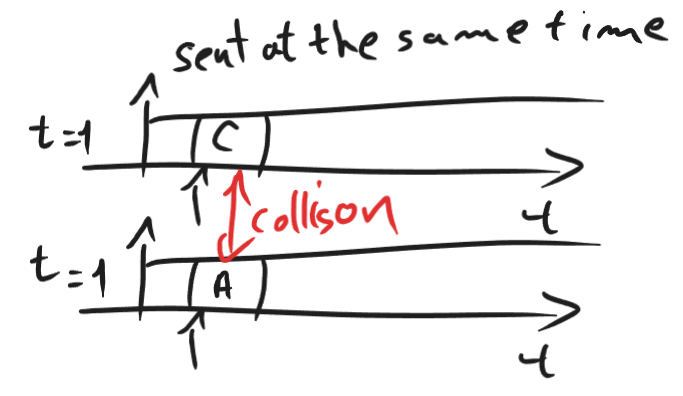 sent at the same time
t=1
C
1
collison
t
t=1
A
1
t